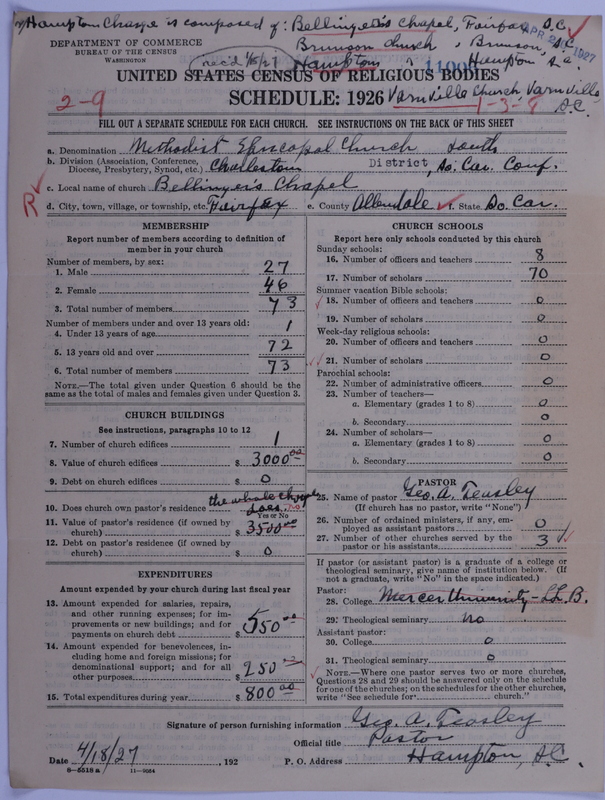 Hampton Charge is composed of: Bellinger's Chapel, Fairfax S.C.
Brunson Church, Brunson, S.C.
APR 2 1927
DEPARTMENT OF COMMERCE
BUREAU OF THE CENSUS
WASHINGTON
rec'd 4/8/27 Hampton " Hampton S.C.
UNITED STATES CENSUS OF RELIGIOUS BODIES
SCHEDULE: 1926 Varnville Church Varnville S.C.
2-9
1-3-8
FILL OUT A SEPARATE SCHEDULE FOR EACH CHURCH. SEE INSTRUCTIONS ON THE BACK OF THIS SHEET
a. Denomination Methodist Episcopal Church South
b. Division (Association, Conference,
Diocese, Presbytery, Synod, etc.) Charleston District, So. Car. Conf.
c. Local name of church Bellinger's Chapel
R
d. City, town, village, or township, etc. Fairfax e. County Allendale f. State So. Car.
MEMBERSHIP
Report number of members according to definition of
member in your church
Number of members, by sex:
1. Male 27
2. Female 46
3. Total number of members 73
Number of members under and over 13 years old:
4. Under 13 years of age 1
5. 13 years old and over 72
6. Total number of members 73
NOTE.—The total given under Question 6 should be the
same as the total of males and females given under Question 3.
CHURCH BUILDINGS
See instructions, paragraphs 10 to 12
7. Number of church edifices 1
8. Value of church edifices $ 3000.00
9. Debt on church edifices $ 0
the whole charge
10. Does church own pastor's residence does. no
Yes or No
11. Value of pastor's residence (if owned by
church) $ 3500.00
12. Debt on pastor's residence (if owned by
church) $ 0
EXPENDITURES
Amount expended by your church during last fiscal year
13. Amount expended for salaries, repairs,
and other running expenses; for im-
provements or new buildings; and for
payments on church debt $ 550.00
14. Amount expended for benevolences, in-
cluding home and foreign missions; for
denominational support; and for all
other purposes $ 250.00
15. Total expenditures during year $ 800.00
CHURCH SCHOOLS
Report here only schools conducted by this church
Sunday schools:
16. Number of officers and teachers 8
17. Number of scholars 70
Summer vacation Bible schools:
18. Number of officers and teachers 0
19. Number of scholars 0
Week-day religious schools:
20. Number of officers and teachers 0
21. Number of scholars 0
Parochial schools:
22. Number of administrative officers 0
23. Number of teachers—
a. Elementary (grades 1 to 8) 0
b. Secondary 0
24. Number of scholars—
a. Elementary (grades 1 to 8) 0
b. Secondary 0
PASTOR
25. Name of pastor Geo. A. Teasley
(If church has no pastor, write "None")
26. Number of ordained ministers, if any, em-
ployed as assistant pastors 0
27. Number of other churches served by the
pastor or his assistants 3
If pastor (or assistant pastor) is a graduate of a college or
theological seminary, give name of institution below. (If
not a graduate, write "No" in the space indicated.)
Pastor:
28. College Mercer University - LL.B.
29. Theological seminary no
Assistant pastor:
30. College 0
31. Theological seminary 0
NOTE.—Where one pastor serves two or more churches,
Questions 28 and 29 should be answered only on the schedule
for one of the churches; on the schedules for the other churches,
write "See schedule for church."
Signature of person furnishing information Geo. A. Teasley
Official title Pastor
Date 4/18/27, 192 P. O. Address Hampton, S.C.
8—5518a 11—9684